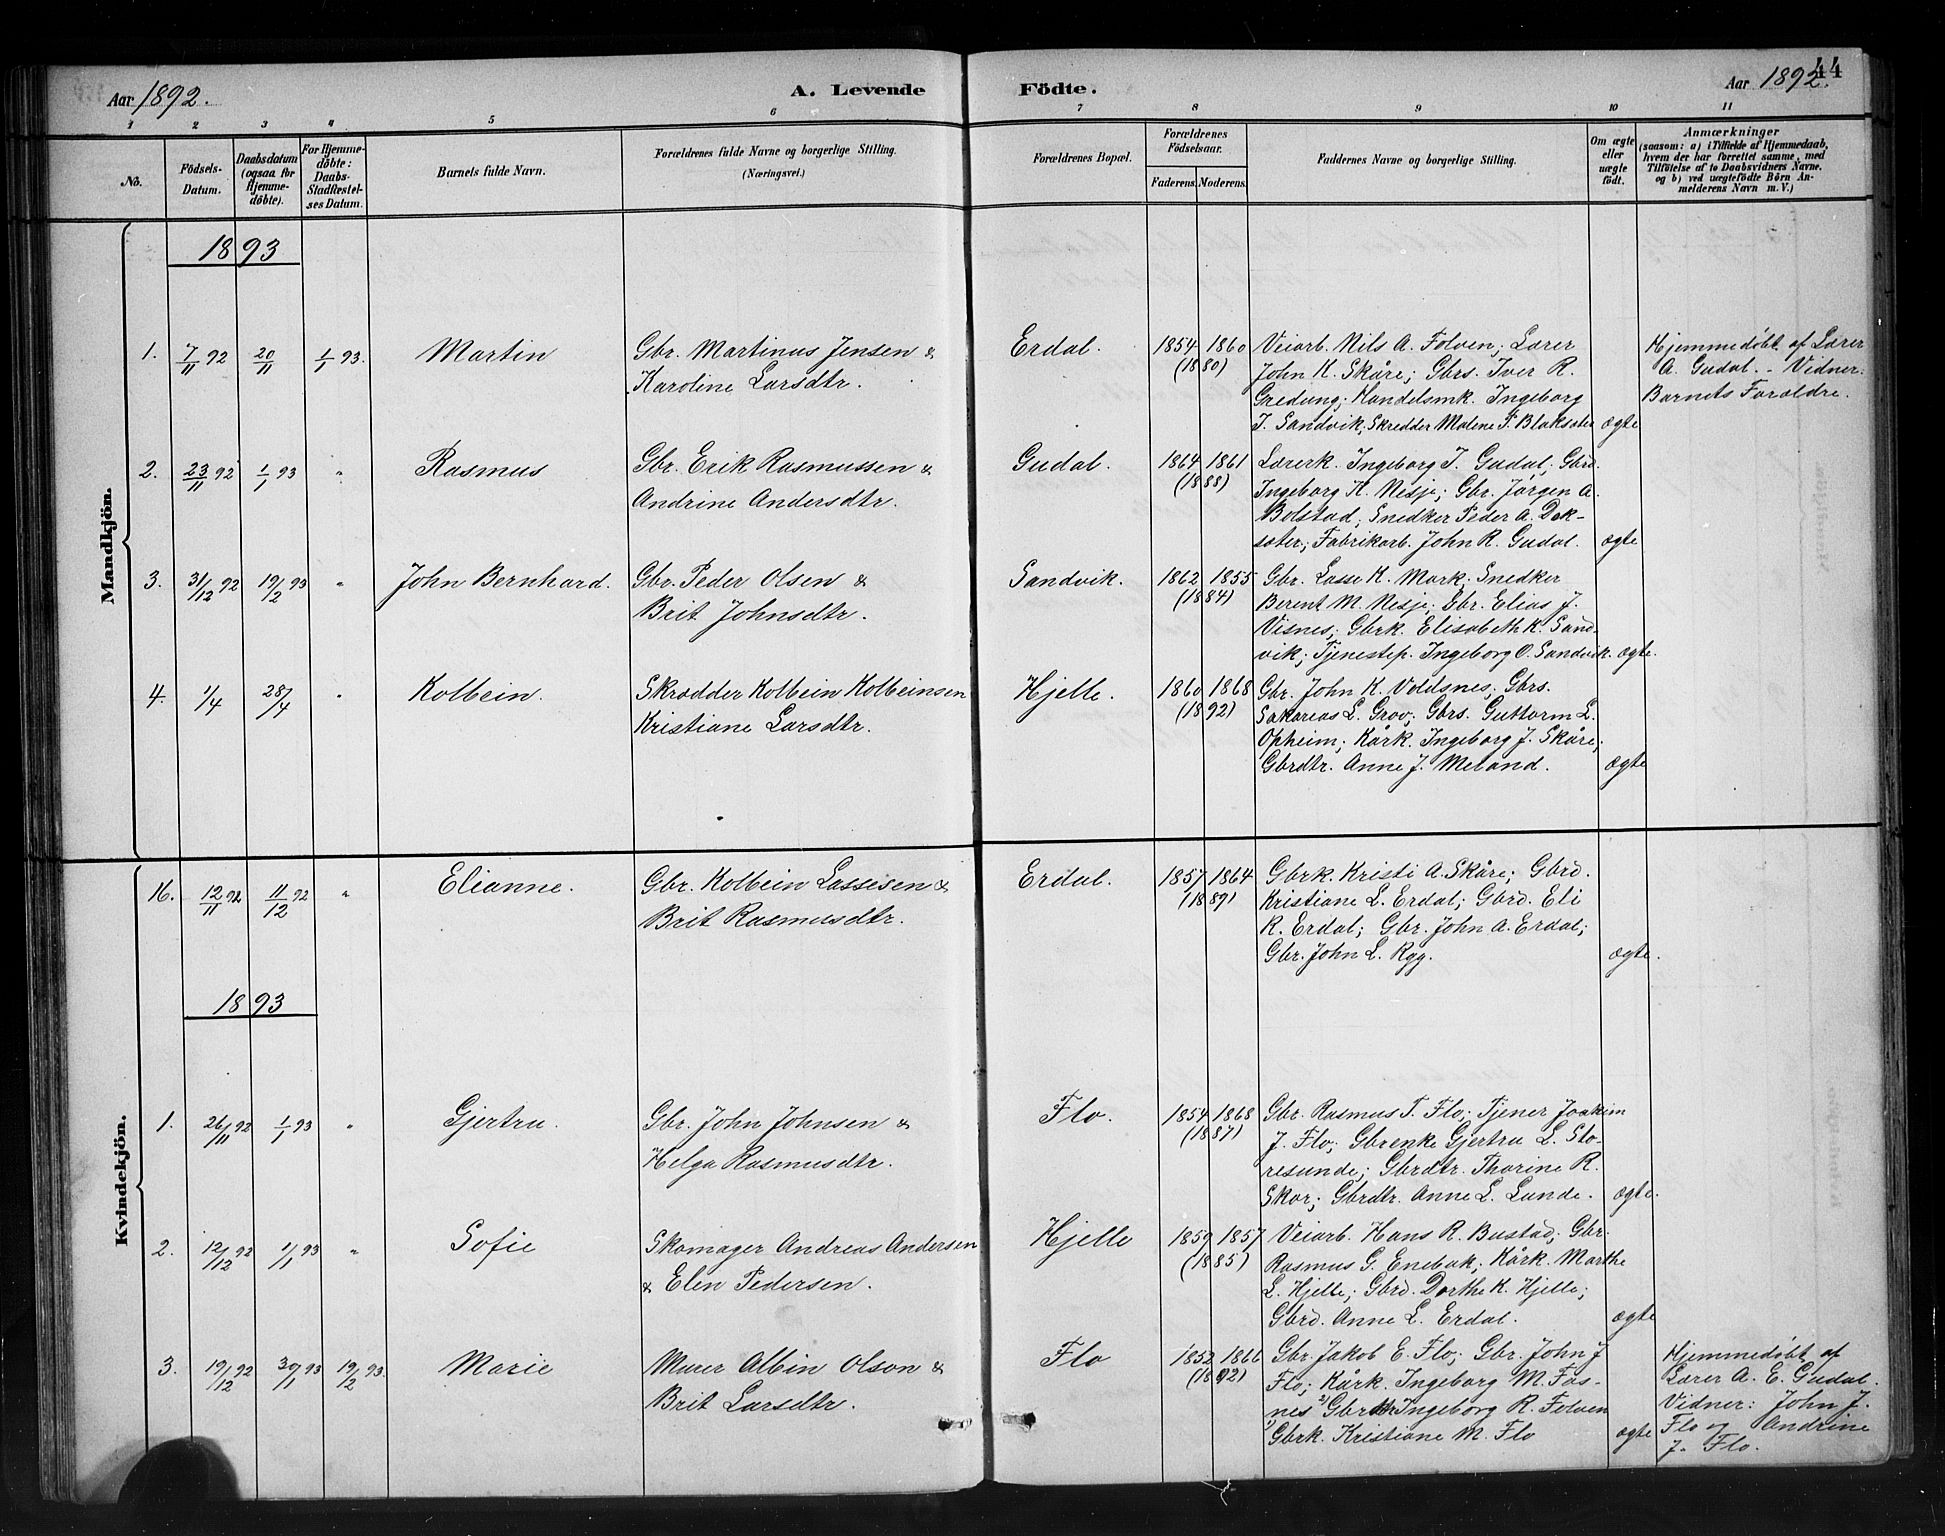 Aar 1892. A. Levende Födte. Aar 1892. 44
1 2 3 4 5 6 7 8 9 10 11
No.
Födsels-
Datum.
Daabsdatum
(ogsaa for
Hjemme-
döbte).
For Hjemme-
döbte:
Daabs-
Stadfæstel-
ses Datum.
Barnets fulde Navn.
Forældrenes fulde Navne og borgerlige Stilling.
(Næringsvei.)
Forældrenes Bopæl.
Forældrenes
Födselsaar.
Faderens. Moderens.
Faddernes Navne og borgerlige Stilling.
Om ægte
eller
uægte
födt.
Anmærkninger
(saasom: a) i Tilfælde af Hjemmedaab,
hvem der har forrettet samme, med
Tilföielse af to Daabsvidners Navne.
og b) ved uægtefödte Börn An-
melderens Navn m. V.)
Mandkjön.
1893
1. 7/11 92 20/11 1/1 93. Martin
Gbr. Martinus Jensen &
Karoline Larsdtr.
Erdal.
1854 1860
(1880)
Veiarb. Nils A. Folven; Lærer
John K. Skåre; Gbrs. Iver R.
Gredung; Handelsmk. Ingeborg
J. Sandvik, Skredder Malene P. Blaksæter
ægte
Hjemmedøbt af Lærer
A. Gudal. - Vidner:
Barnets Forældre.
2. 23/11 92 1/1 93 " Rasmus
Gbr. Erik Rasmussen &
Andrine Andersdtr.
Gudal.
1864 1861
(1888)
Lærerk. Ingeborg J. Gudal; Gbrd.
Ingeborg K. Nesje; Gbr. Jørgen A.
Bolstad; Snedker Peder A. Døk-
sæter; Fabrikarb. John R. Gudal.
ægte
3. 31/12 92 19/2 93 " John Bernhard.
Gbr. Peder Olsen &
Brit Johnsdtr.
Sandvik.
1862 1855
(1884)
Gbr. Lasse K. Mark; Snedker
Berent M. Nesje; Gbr. Elias J.
Visnes; Gbrk. Elisabeth K. Sand-
vik; Tjenestep. Ingeborg O. Sandvik.
ægte.
4. 1/4 28/4 " Kolbein.
Skrædder Kolbein Kolbeinsen
Kristiane Larsdtr.
Hjelle.
1860 1868
(1892)
Gbr. John K. Voldsnes; Gbrs.
Sakarias L. Grov; Gbrs. Guttorm L.
Opheim; Kårk. Ingeborg J. Skåre;
Gbrdtr. Anne J. Meland.
ægte
Kvindekjön.
16. 12/11 92 11/12 92 " Elianne.
Gbr. Kolbein Lassesen &
Brit Rasmusdtr.
Erdal.
1857 1864
(1889)
Gbrk. Kristi A. Skåre; Gbrd.
Kristiane L. Erdal; Gbrd. Eli
R. Erdal; Gbr. John A. Erdal;
Gbr. John L. Ryg.
ægte.
1893
1. 26/11 92 1/1 93 " Gjertru.
Gbr. John Johnsen &
Helga Rasmusdtr.
Flo.
1854 1868
(1887)
Gbr. Rasmus T. Flo; Tjener Joakim
J. Flo; Gbrenke Gjertru L. Sto-
resunde; Gbrdtr. Thorine R.
Skar; Gbrdtr. Anne L. Lunde.
ægte.
2. 12/12 92 1/1 93 " Sofie
Skomager Andreas Andersen
& Elen Pedersen.
Hjelle
1859 1857
(1885)
Veiarb. Hans R. Bustad; Gbr.
Rasmus G. Enebak; Kårk. Marthe
L. Hjelle; Gbrd. Dorthe K. Hjelle;
Gbrd. Anne L. Erdal.
ægte
3. 19/12 92 30/1 93 19/2 93. Marie
Murer Albin Olson &
Brit Larsdtr.
Flo
1852 1866
(1892)
Gbr. Jakob E. Flo; Gbr. John J
Flo; Kårk. Ingeborg M. Fos-
nes 2) Gbrdtr Ingeborg R. Folven
1) Gbrk. Kristiane M. Flo
ægte
Hjemmedøbt af
Lærer A. E. Gudal.
Vidner: John J.
Flo og Andrine
J. Flo.